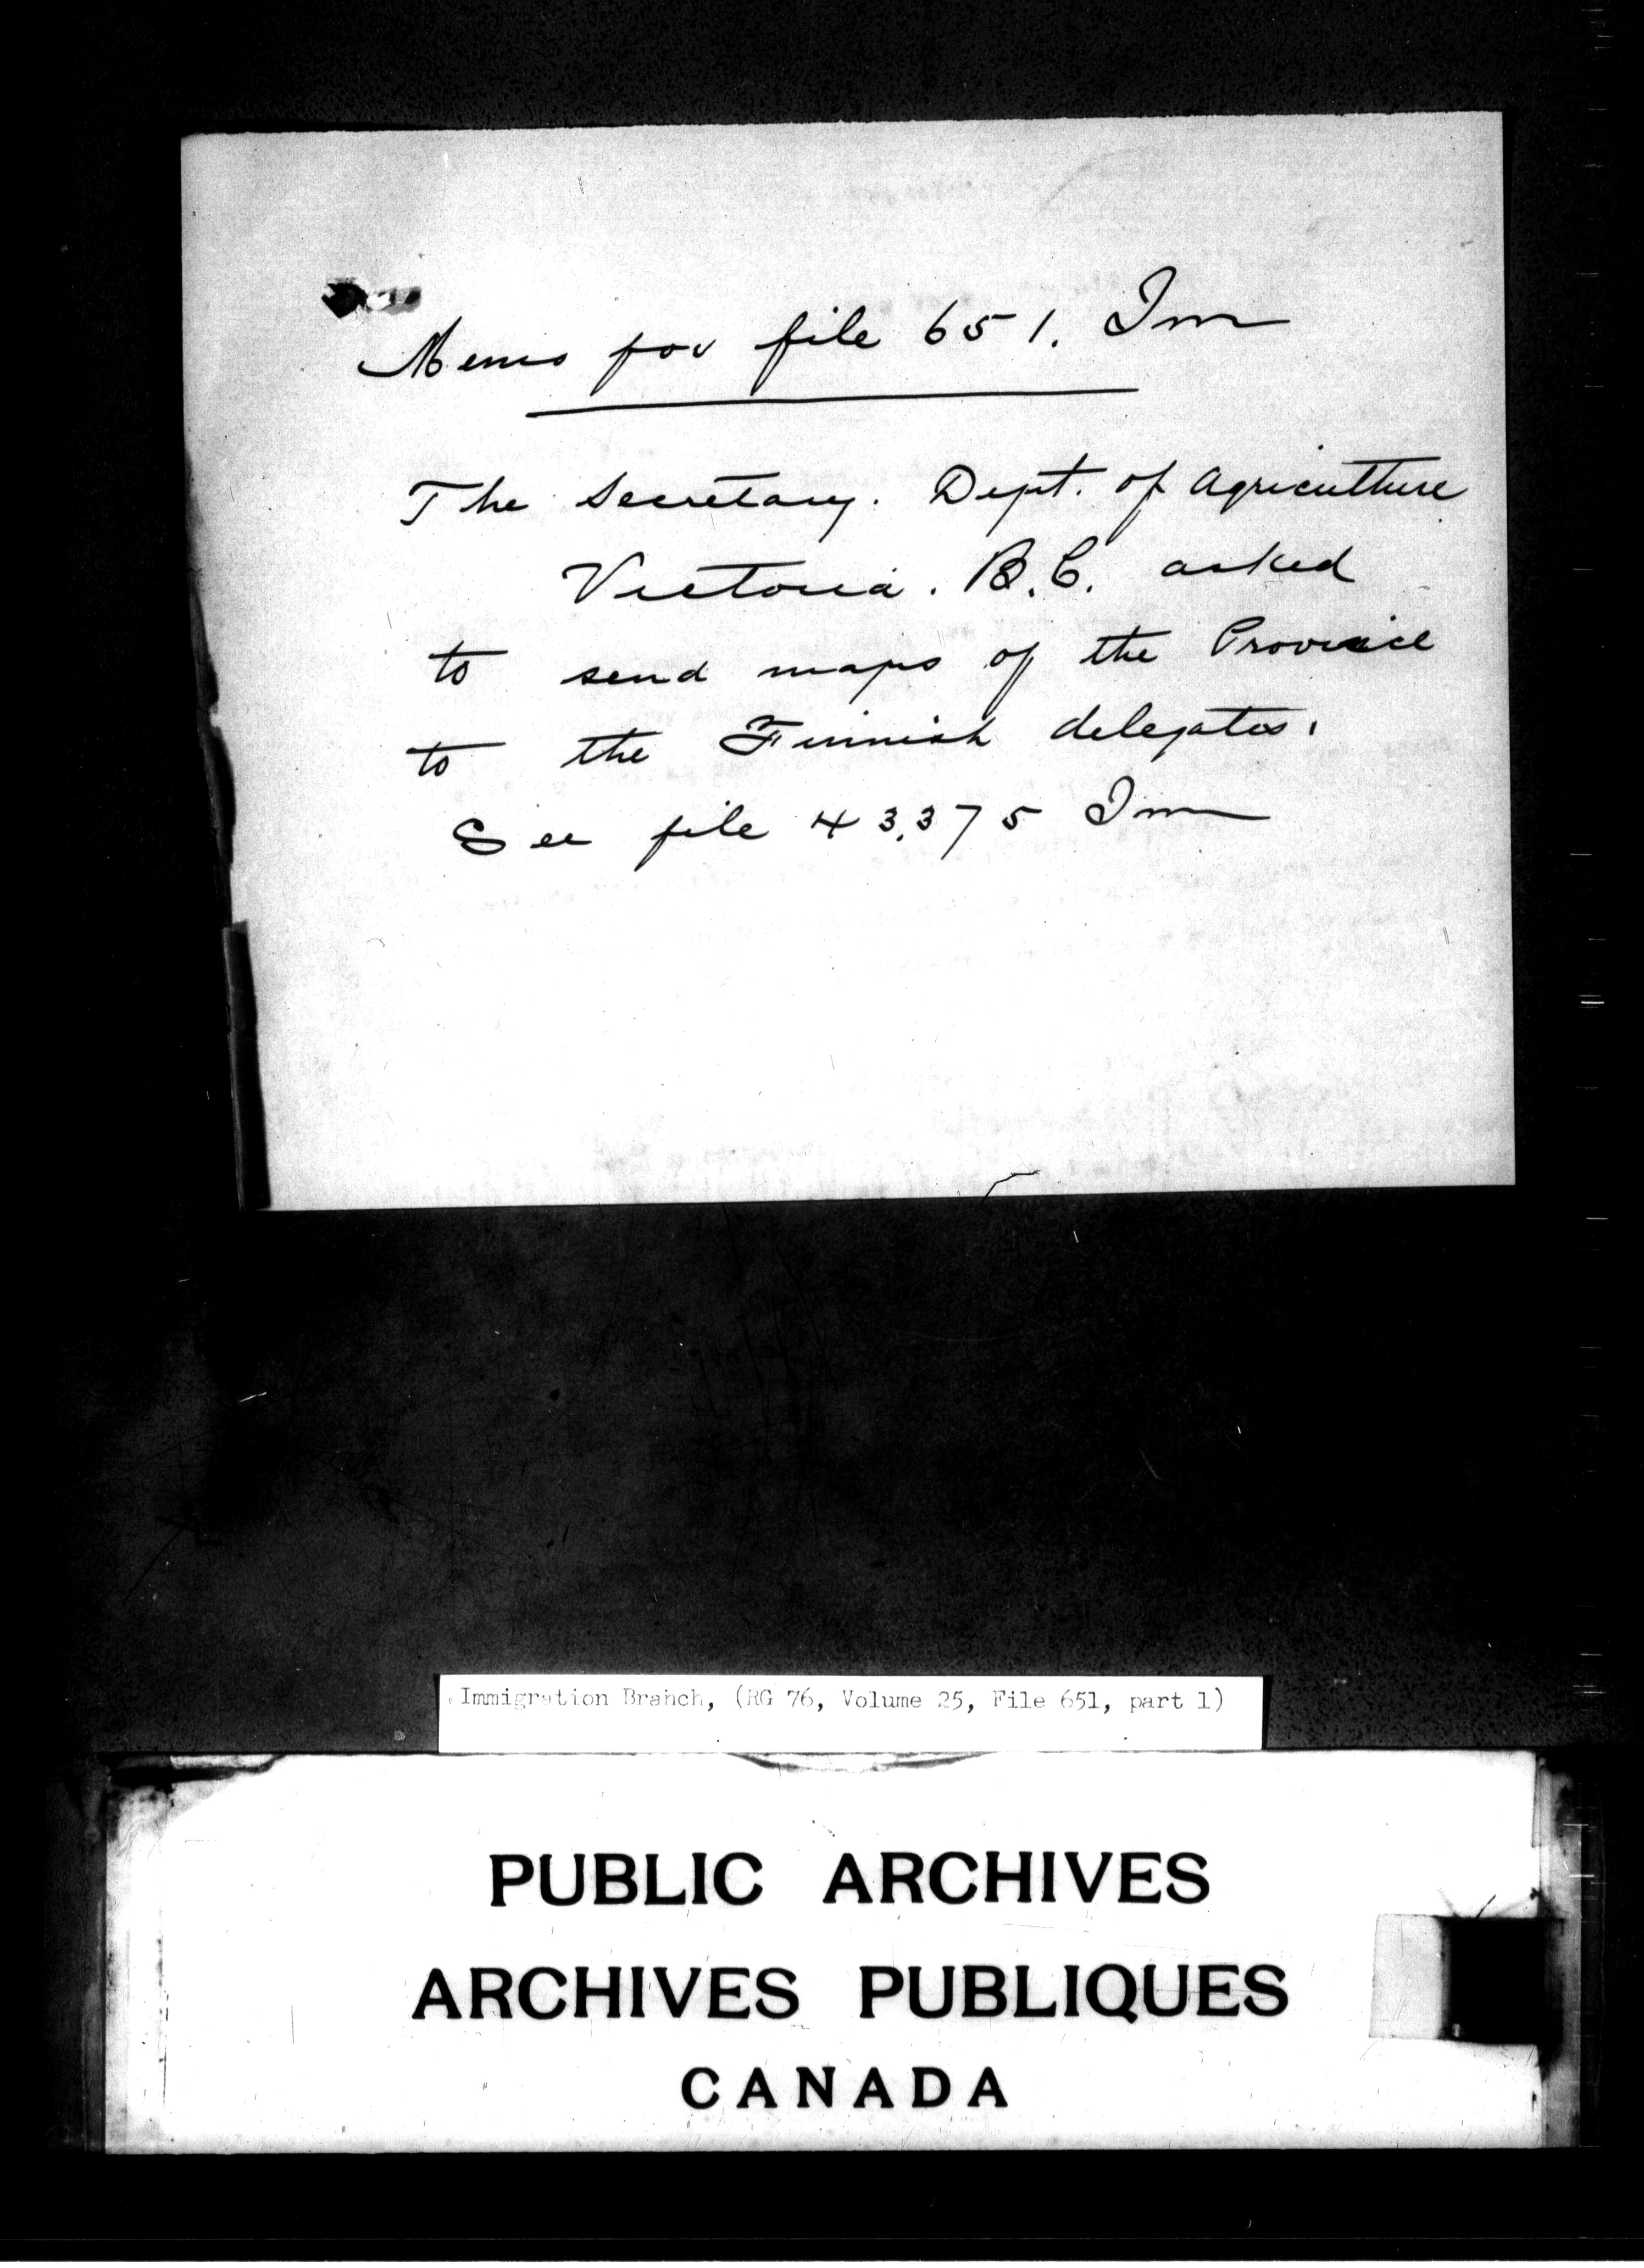 Memo for file 651. Imm
The Secretary. Dept. of Agriculture
Victoria. B.C. asked
to send maps of the Province
to the Finnish delegates.
See file 43,375 Imm
Immigration Branch, (RG 76, Volume 25, File 651, part 1)
PUBLIC ARCHIVES
ARCHIVES PUBLIQUES
CANADA